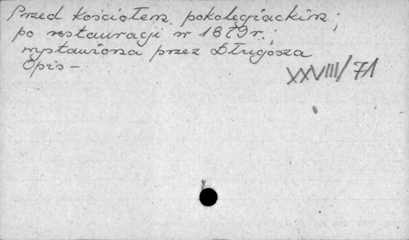 Przed kościołem pokolegiackim;
po restauracji w 1879r.;
wystawiona przez Długosza
Opis –
XXVIII/71